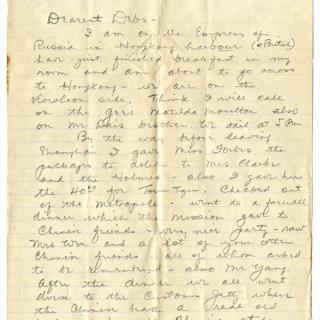 Dearest Debs -
I am on the Empress of
Russia in Hongkong harbour (& British)
have just finished breakfast in my
room and am about to go across
to Hongkong - we are on the
Kowloon side. Think I will call
on the Grrs. Matilda Moulton also
on Mr Dais brother. We sail at 5 P.M.
By the way before leaving
Shanghai I gave Miss Forbes the
packages to deliver to Mrs Clarke
and the Holmes - also I gave her
the for Checked out
of the Metropole - went to a farewell
dinner which the mission gave to
Chinese friends - very nice party - saw
Mrs and a lot of your other
Chinese friends all of whom asked
to be remembered - also Mr Yang.
After the dinner we all went
down to the Customs Jetty where
the Chinese had a